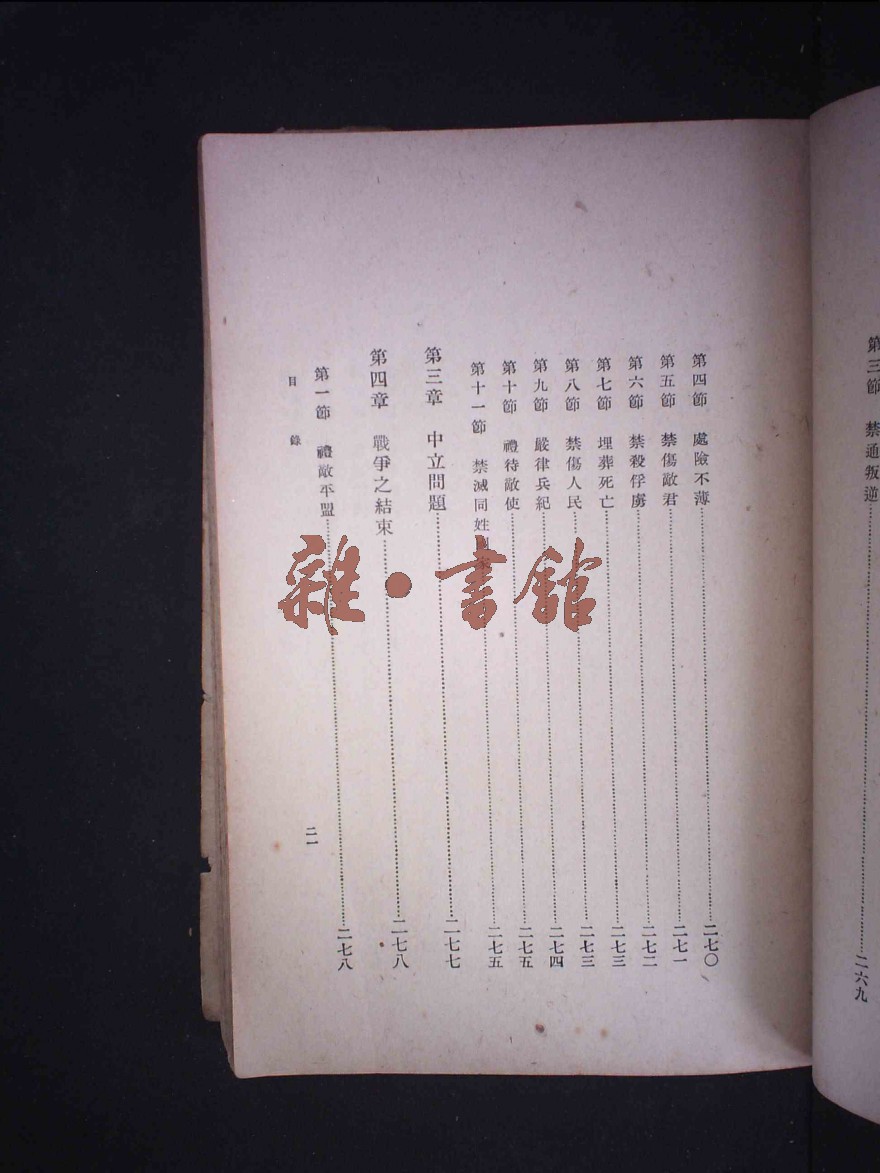 第三節　禁通叛逆……二六九
第四節　處險不薄……二七〇
第五節　禁傷敵君……二七一
第六節　禁殺俘虜……二七二
第七節　埋葬死亡……二七三
第八節　禁傷人民……二七三
第九節　嚴律兵紀……二七四
第十節　禮待敵使……二七五
第十一節　禁滅同姓……二七五
第三章　中立問題……二七七
第四章　戰爭之結束……二七八
第一節　禮敵平盟……二七八
目錄
二一
雜・書館